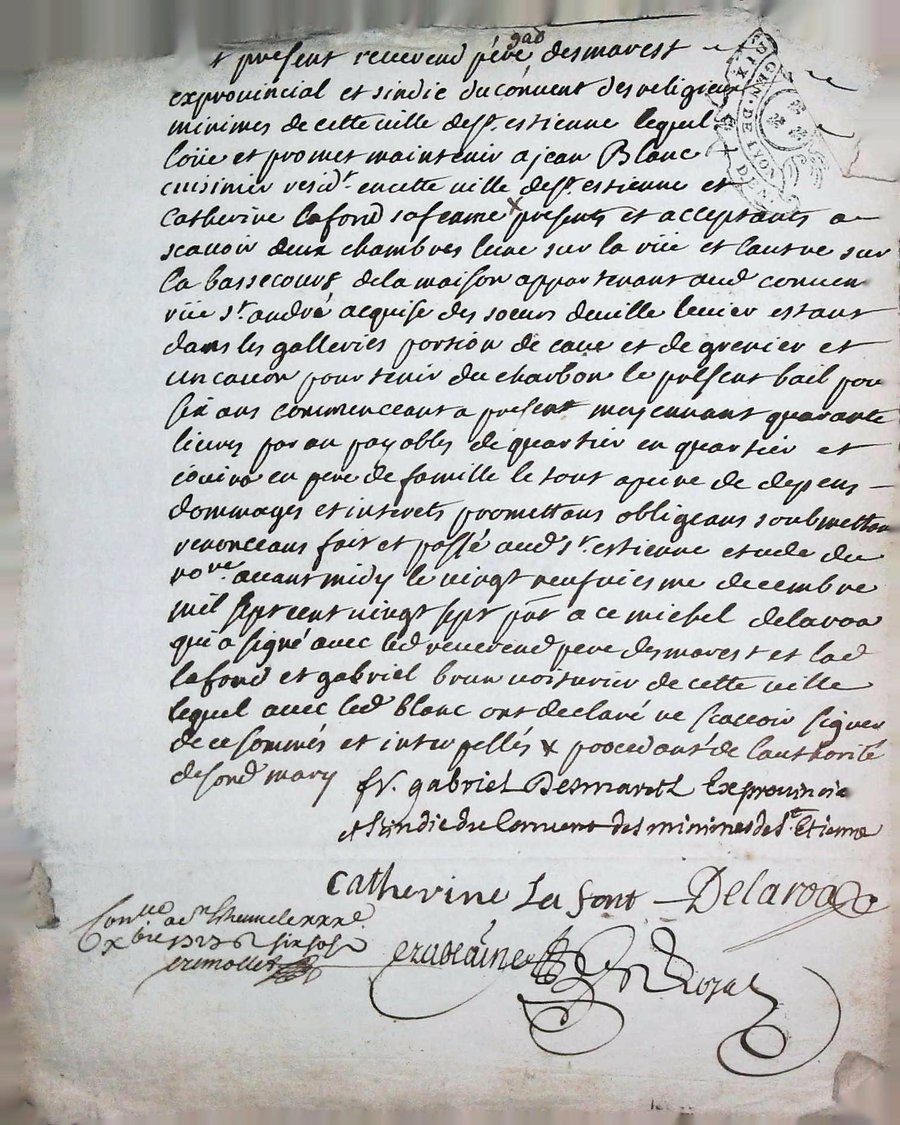 gab
t present reverend père desmarest
exprovincial et sindic du convent des religieux
minimes de cette ville de st. estienne lequel
loüe et promet maintenir a jean Blanc
cuisinier resid.t en cette ville de st. estienne et
Catherine lafond sa femme x presents et acceptants a
scavoir deux chambres lune sur la rüe et lautre sur
la bassecour de la maison appartenant aud conven
rüe st. andré acquise des soeurs deville levier estant
dans les galleries portion de cave et de grenier et
un caveau pour tenir du charbon le présent bail pour
six ans commenceant a present moyennant quarante
livres par an payables de quartier en quartier et
jouira en pere de famille le tout a peine de depens
dommages et interets promettans obligeans soubmettan
renonceans fait et passé aud st. estienne etude du
no.re avant midy le vingt neufviesme decembre
mil sept cent vingt sept pnt a ce michel delaroa
qui a signé avec led reverend pere desmarest et lad
lafond et gabriel brun voiturier de cette ville
lequel avec led blanc ont declaré ne scavoir signer
de ce sommés et interpellés x procedant de lauthorité
de sond mary
fr. gabriel Desmarest Exprovincia
et Sindic du Convent des minimes de St. Etienne
Catherine La font Delaroa
Con.llé a St Etienne le xxx e
x bre 1727 R six sols